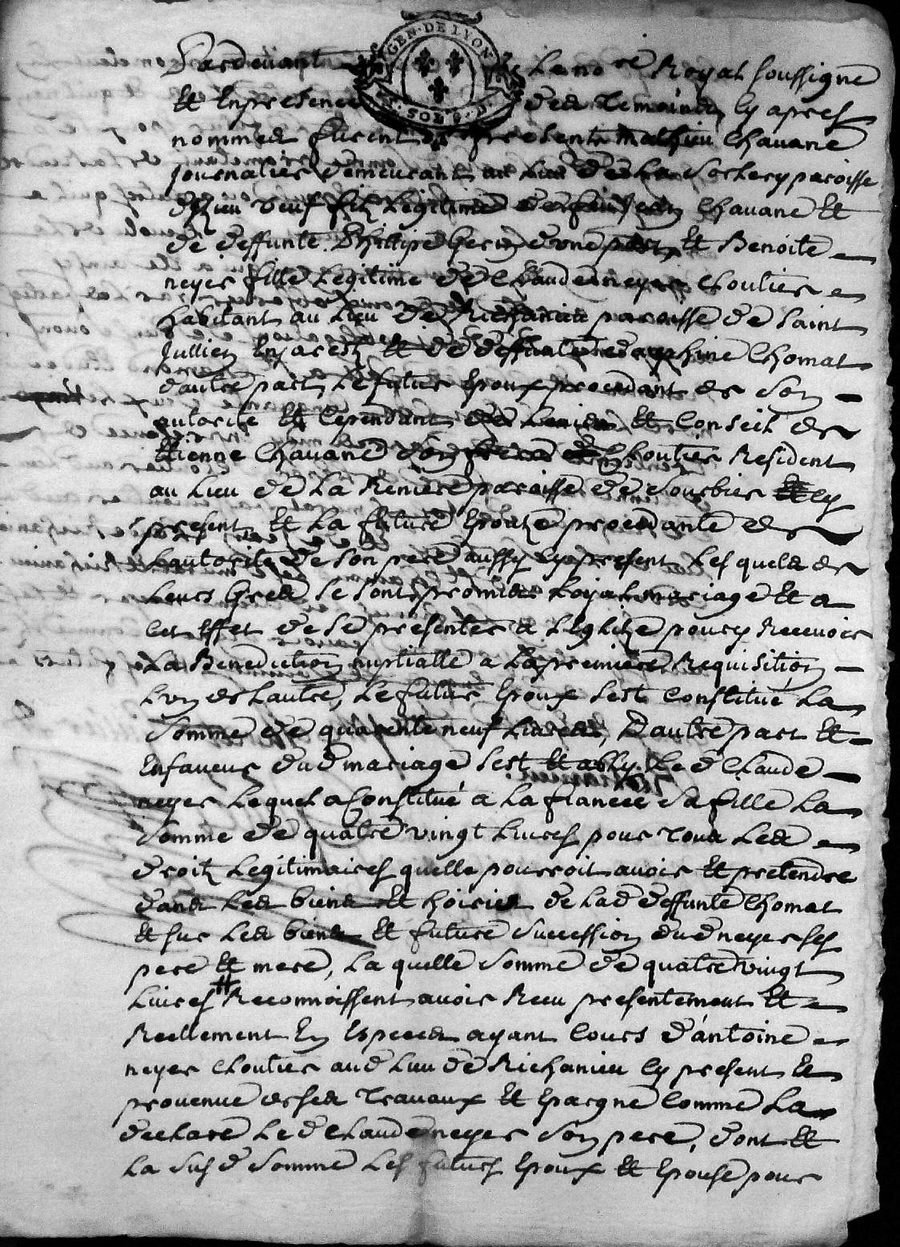 GEN·DE LYON
SOL·9·D
Pardevant Le no.re Royal soussigné
Et En presence des temoings Cy apres
nommes furent presents mathieu Chavane
journalier demeurant au Lieu de La paroisse
Dizieu veuf fils Legitime de feu Jean Chavane Et
de deffunte Phillipe Gerin d'une part Et Benoite
neyer fille Legitime de Claude neyer Cloutier
habitant au Lieu de Richanieu paroisse de Saint
Jullien En jarest Et de deffunte Chomat
d'autre part Le futur Epoux procedant de Son
autorité Et Cependant de Et Conseil de
Etienne Chavane son Cloutier Resident
au Lieu de La Reniere paroisse de Et Cy
present Et La future Epouze procedante de
L'autorité de Son pere aussy Cy present Lesquels de
Leurs Gres Se Sont promis Loyal mariage Et a
Cet Effet de Se presenter a L'Eglize pour y Recevoir
La Benediction nuptialle a La premiere Requisition
L'un de Lautre, Le futur Epoux S'est Constitué La
Somme de quarente neuf Livres, D'autre part Et
En faveur dud mariage S'est Etably Led Claude
neyer Lequel a Constitué a La fiancée Sa fille La
Somme de quatre vingt Livres pour Tous Les
droits Legitimaires quelle pourroit avoir Et pretendre
dans Les biens Et hoirie de Lad deffunte Chomat
Et sur Les biens Et future Succession dud neyer Ses
pere Et mere, La quelle Somme de quatre vingt
Livres Reconnoissent avoir Receu presentement Et
Reellement En Especes ayant Cours d'antoine
neyer Cloutier aud Lieu de Richanieu Cy present Et
provenue de Ses Travaux Et Epargne Comme La
declaré Led Claude neyer Son pere, dont Et
La Susd Somme Les futurs Epoux Et Epouse pour